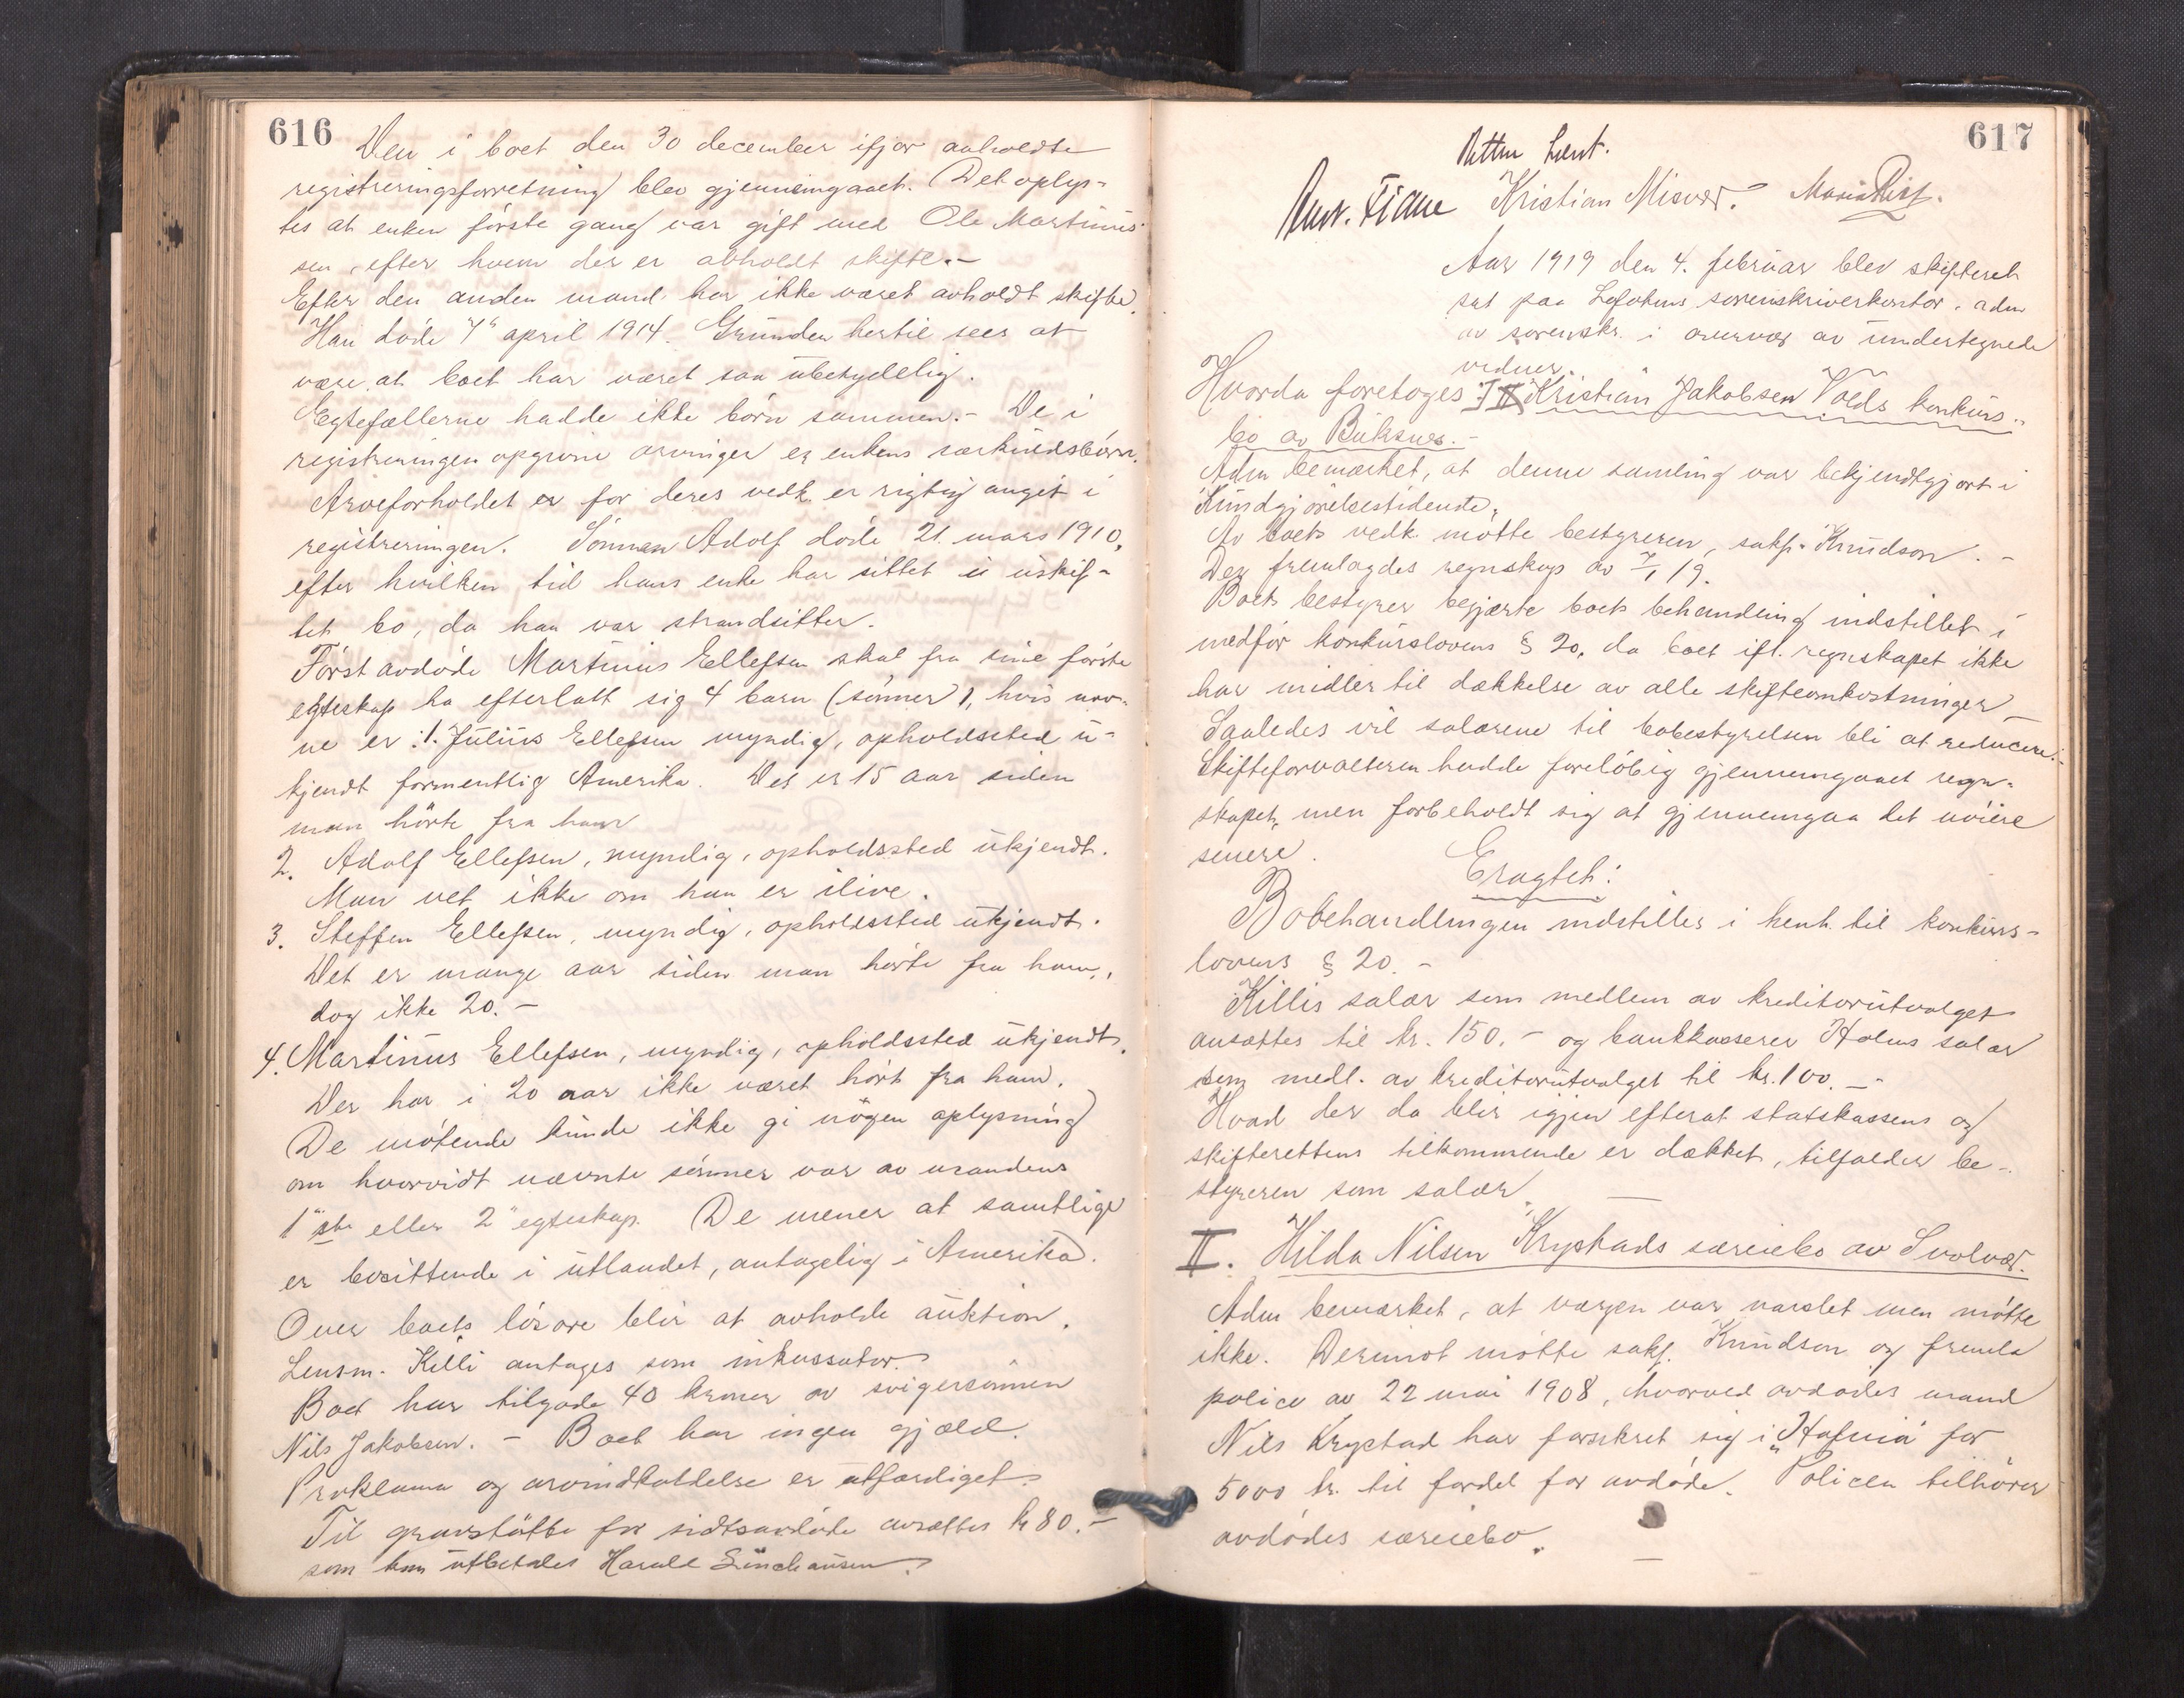 616
Den i boet den 30 december ifjor avholdte
registreringsforretning blev gjennemgaaet. Det oplys-
tes at enken første gang var gift med Ole Martinus-
sen, efter hvem der er avholdt skifte.-
Efter den anden mand har ikke været avholdt skifte.
Han døde 7" april 1914. Grunden hertil sees at
være at boet har været saa ubetydelig.
Egtefællerne hadde ikke børn sammen.- De i
registreringen opgivne arvinger er enkens særkuldsbørn.
Arveforholdet er for deres vedk. er rigtig angit i
registreringen. Sønnen Adolf døde 21. mars 1910,
efter hvilken tid hans enke har sittet i uskif-
tet bo, da han var strandsitter.
Først avdøde Martinus Ellefsen skal fra sine første
egteskap ha efterlatt sig 4 barn (sønner), hvis nav-
ne er: 1. Julius Ellefsen myndig, opholdssted u-
kjendt formentlig Amerika. Det er 15 aar siden
man hørte fra ham
2. Adolf Ellefsen, myndig, opholdssted ukjendt.
Man vet ikke om han er ilive.
3. Steffen Ellefsen, myndig, opholdssted ukjendt.
Det er mange aar siden man hørte fra ham,
dog ikke 20.-
4. Martinus Ellefsen, myndig, opholdssted ukjendt.
Der har i 20 aar ikke været hørt fra ham.
De møtende kunde ikke gi nogen oplysning
om hvorvidt nævnte sønner var av mandens
1"ste eller 2" egteskap. De mener at samtlige
er bosittende i utlandet, antagelig i Amerika.
Over boets løsøre blir at avholde auktion.
Lensm. Killi antages som inkassator.
Boet har tilgode 40 kroner av svigersønnen
Nils Jakobsen. - Boet har ingen gjæld.
Proklama og arvindkaldelse er utfærdiget.
Til gravstøtte for sidtsavdøde avsættes kr 80.-
som kan utbetales Harald
617
Retten hævt.
Kristian Misvær. Maria
Aar 1919 den 4. februar blev skifteret
sat paa Lofotens sorenskriverkontor, adm
av sorenskr. i overvær av undertegnede
vidner.
Hvorda foretoges: I Kristian Jakobsen Volds konkurs-
bo av Buksnes.-
Adm bemærket, at denne samling var bekjendtgjort i
Kundgjørelsestidende.
Av boets vedk. møtte bestyreren, sakf. Knudson.-
Der fremlagdes regnskap av 7/1 19.
Boets bestyrer begjærte boets behandling indstillet i
medfør konkurslovens § 20, da boet ifl. regnskapet ikke
har midler til dækkelse av alle skifteomkostninger -
Saaledes vil salærene til bobestyrelsen bli at reducere.-
Skifteforvalteren hadde foreløbig gjennemgaaet regn-
skapet, men forbeholdt sig at gjennemgaa det nøiere
senere.
Eragtet:
Bobehandlingen indstilles i henh. til konkurs-
lovens § 20.-
Killis salær som medlem av kreditorutvalget
ansættes til kr. 150.- og bankkasserer Holms salær
som medl. av kreditorutvalget til kr. 100.-
Hvad der da blir igjen efterat statskassens og
skifterettens tilkommende er dækket, tilfalder be-
styreren som salær. -
II. Hilda Nilsen Krystads særeiebo av Svolvær.
Adm bemærket, at værgen var varslet men møtte
ikke. Derimot møtte sakf. Knudson og fremla
police av 22 mai 1908, hvorved avdødes mand
Nils Krystad har forsikret sig i "Hafnia" for
5000 kr. til fordel for avdøde. Policen tilhører
avdødes særeiebo. -